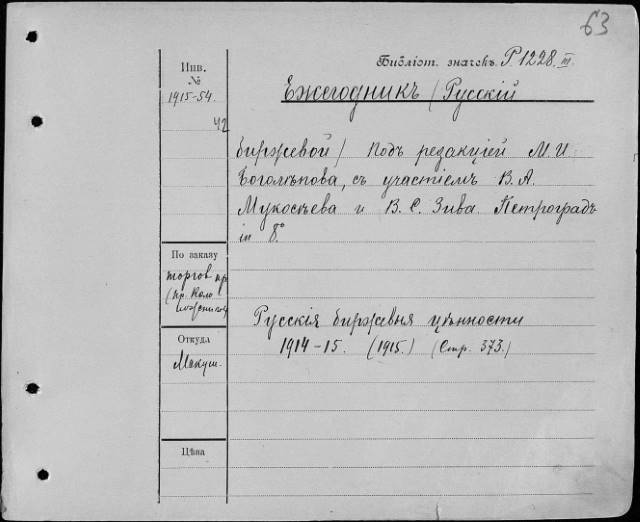 63
Библіот. значекъ. P 1228 III.
Инв.
№
1915-54.
42
Ежегодникъ / Русскій
биржевой / Подъ редакціей М. И.
Боголѣпова, съ участіемъ В. А.
Мукосѣева и В. С. Зива. Петроградъ
in 8°
По заказу
торгов
Русскія биржевыя цѣнности
1914-15. (1915.) (Стр. 373.)
Откуда
Макуш.
Цѣна